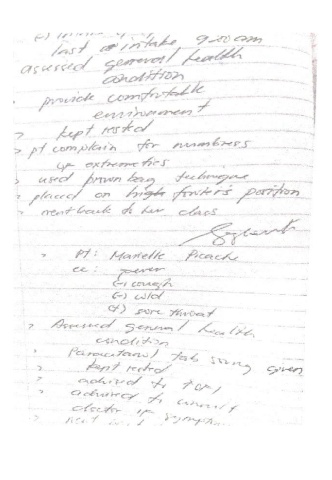 last intake 9:00 am
assessed general health
condition
provide comfortable
environment
> kept rested
> pt complain for numbness
of extremeties
> used brown bag technique
> placed on high fowler's position
> went back to her class
> Pt: Marielle Picache
cc: fever
(-) cough
(-) cold
(+) sore throat
> Assessed general health
condition
> Paracetamol tab 500mg given
> kept rested
> advised to
> advised to consult
doctor if symptom